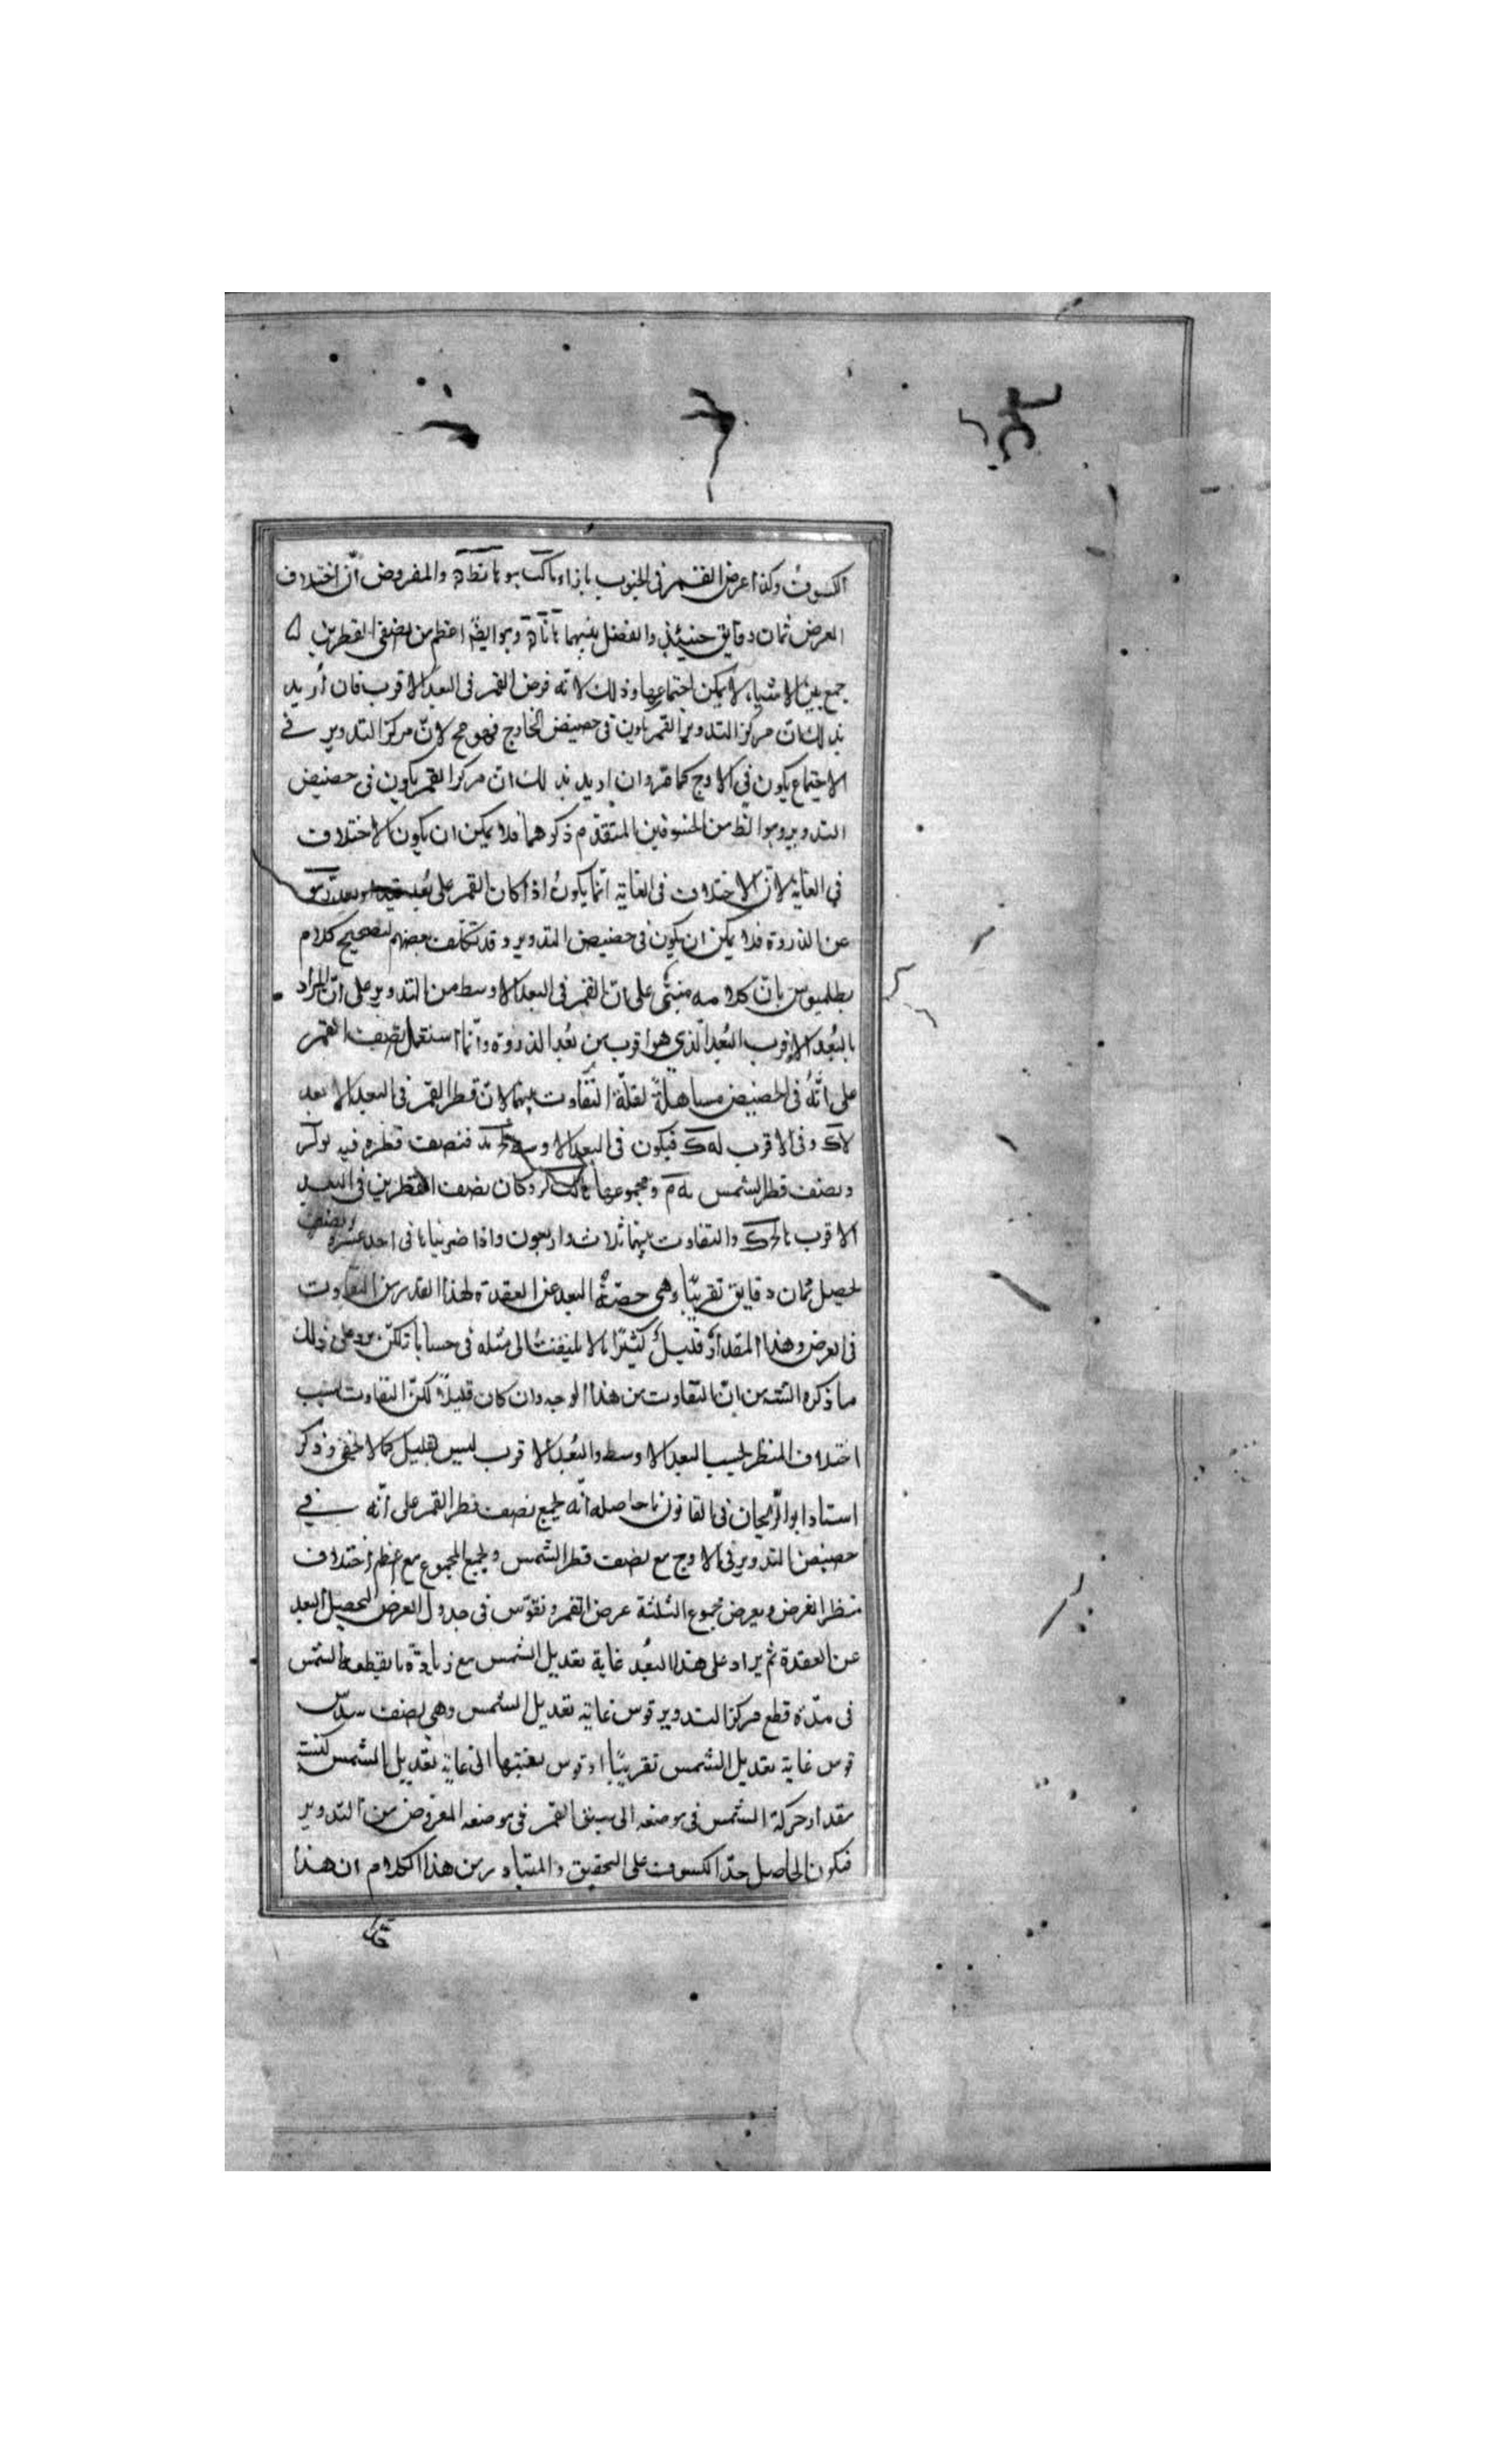 الكسوف وكذا عرض القمر فى الجنوب بازاء ياكب هو والمفروض أنّ اختلاف
العرض ثمان دقايق حنيئذ والفضل بينهما وهو ايضًا اعظم من نصفى القطرين
جمع بين الاشياء لا يمكن اجتماعها وذلك لانه فرض القمر فى البعد الاقرب فان أريد
بذلك انّ مركز التدوير القمر يكون فى حضيض الخارج فهو مح لانّ مركز التدوير فى
الاجتماع يكون فى الاوج كما مرّ وان اريد بذلك انّ مركز القمر يكون فى حضيض
التدوير وهوا لظ من الخسوفين المتقدّم ذكرهما فلا يمكن ان يكون الاختلاف
فى الغاية لانّ الاختلاف فى الغاية انّما يكونُ اذا كان القمر على بُعد
عن الذروة فلا يمكن ان يكون فى حضيض التدوير وقد تكلّف بعضهم لتصحيح كلام
بطلميوس بانّ كلامه مبنىّ على انّ القمر فى البعد الاوسط من التدوير على انّ المراد
بالبُعد الاقرب البُعد الّذى هو اقرب من بُعد الذروة وانّما استعمل نصف القمر
على انّهُ فى الحضيض مساهلةً لقلّة التّفاوت بينها لانّ قطر القمر فى البعد الابعد
لاك وفى الاقرب له ك فيكون فى البعد الاوسط فنصف قطره فيه
ونصف قطر الشمس يه م ومجموعهما وكان نصف القطرين فى البعد
الاقرب والتفاوت بينهما ثلاث واربعون واذا ضربناها فى احد عشر ونصف
يحصل ثمان دقايق تقريبًا وهى حصّةُ البعد عن العقدة لهذا القدر من التفاوت
فى العرض وهذا المقدار قليلٌ كثيرًا ما لا يلتفت الى مثله فى حساباتكن يرد على ذلك
ما ذكره الشه من انّ التفاوت من هذا الوجه وان كان قليلًا لكنّ التفاوت بسبب
اختلاف المنظر بحسب البعد الاوسط والبُعد الاقرب ليس بقليل كما لا يخفى وذكر
استاد ابو الرّيحان فى القانون ما حاصله انّه يجمع نصف قطر القمر على انّه فى
حضيض التدوير فى الاوج مع نصف قطر الشمس ويجمع المجموع مع اعظم اختلاف
منظر العرض ويعرض مجموع الثلثة عرض القمر ونقوّس فى جدول العرض لتحصيل البعد
عن العقدة ثم يزاد على هذا البُعد غاية تعديل الشمس مع زيادة ما يقطعه الشمس
فى مدّة قطع مركز التدوير قوس غاية تعديل الشمس وهى نصف سدس
قوس غاية تعديل الشمس تقريبًا اذ قوس نسبتها الى غاية تعديل الشمس كنسبة
مقدار حركة الشمس فى موضعه الى سبق القمر فى موضعه المفروض من التدوير
فيكون الحاصل حدّ الكسوف على التحقيق والمتبادر من هذا الكلام ان هذا